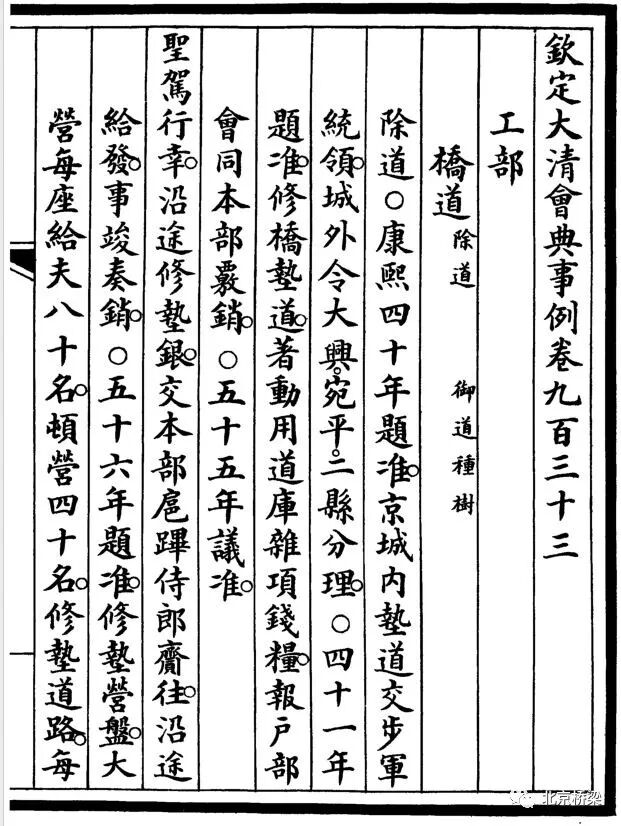 欽定大清會典事例卷九百三十三
工部
橋道 除道 御道種樹
除道○康熙四十年題准。京城內墊道交步軍
統領。城外令大興。宛平。二縣分理。○四十一年
題准。修橋墊道。著動用道庫雜項錢糧。報戶部
會同本部覈銷。○五十五年議准。
聖駕行幸。沿途修墊銀。交本部扈蹕侍郎齎往。沿途
給發。事竣奏銷。○五十六年題准。修墊營盤。大
營每座給夫八十名。頓營四十名。修墊道路。每
北京桥梁